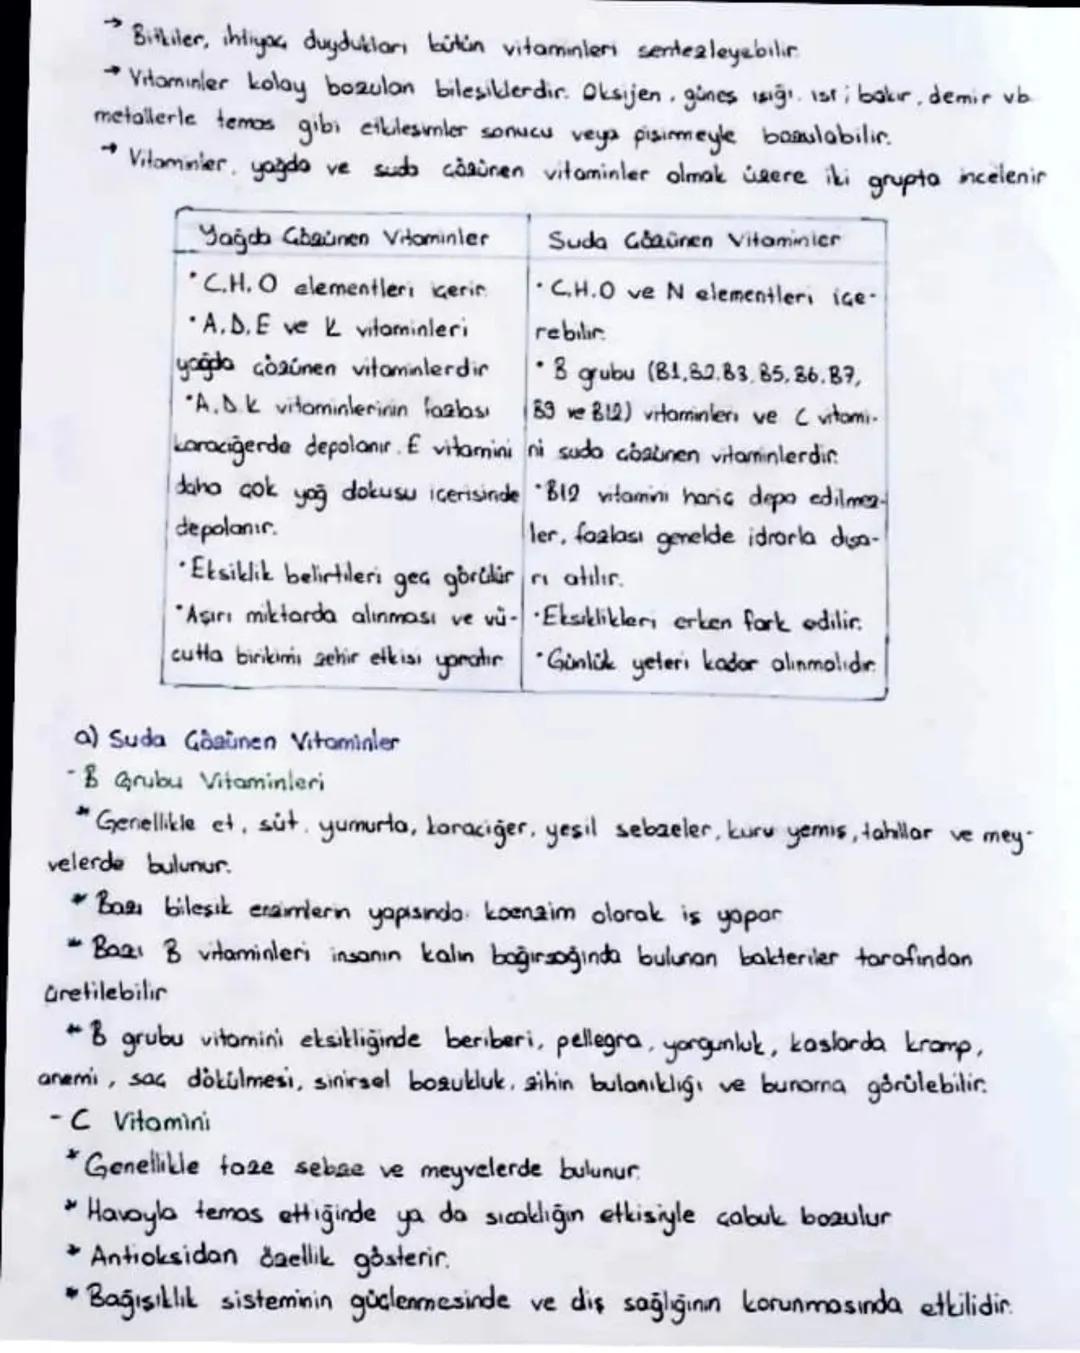 → Bitkiler, ihtiyaç duydukları bütün vitaminleri sentezleyebilir.
→ Vitaminler kolay bozulan bileşiklerdir. Oksijen, güneş ışığı, ısı; bakır, demir vb.
metallerle temas gibi etkileşimler sonucu veya pişirmeyle bozulabilir.
→ Vitaminler, yağda ve suda çözünen vitaminler olmak üzere iki grupta incelenir
Yağda Çözünen Vitaminler
• C.H.O elementleri içerir.
• A.D.E ve K vitaminleri
yağda çözünen vitaminlerdir
• A.D.K vitaminlerinin fazlası
karaciğerde depolanır. E vitamini
daha çok yağ dokusu içerisinde
depolanır.
• Eksiklik belirtileri geç görülür
• Aşırı miktarda alınması ve vü-
cutta birikimi zehir etkisi yaratır
Suda Çözünen Vitaminler
• C.H.O ve N elementleri içe-
rebilir.
• B grubu (B1,B2,B3,B5,B6,B7,
B9 ve B12) vitaminleri ve C vitami-
ni suda çözünen vitaminlerdir.
• B12 vitamini hariç depo edilmez-
ler, fazlası genelde idrarla dışa-
rı atılır.
• Eksiklikleri erken fark edilir.
• Günlük yeteri kadar alınmalıdır.
a) Suda Çözünen Vitaminler
- B Grubu Vitaminleri
* Genellikle et, süt, yumurta, karaciğer, yeşil sebzeler, kuru yemiş, tahıllar ve mey-
velerde bulunur.
* Bazı bileşik enzimlerin yapısında koenzim olarak iş yapar
* Bazı B vitaminleri insanın kalın bağırsağında bulunan bakteriler tarafından
üretilebilir
* B grubu vitamini eksikliğinde beriberi, pellegra, yorgunluk, kaslarda kramp,
anemi, saç dökülmesi, sinirsel bozukluk, zihin bulanıklığı ve bunama görülebilir.
- C Vitamini
* Genellikle taze sebze ve meyvelerde bulunur.
* Havayla temas ettiğinde ya da sıcaklığın etkisiyle çabuk bozulur
* Antioksidan özellik gösterir.
* Bağışıklık sisteminin güçlenmesinde ve diş sağlığının korunmasında etkilidir.